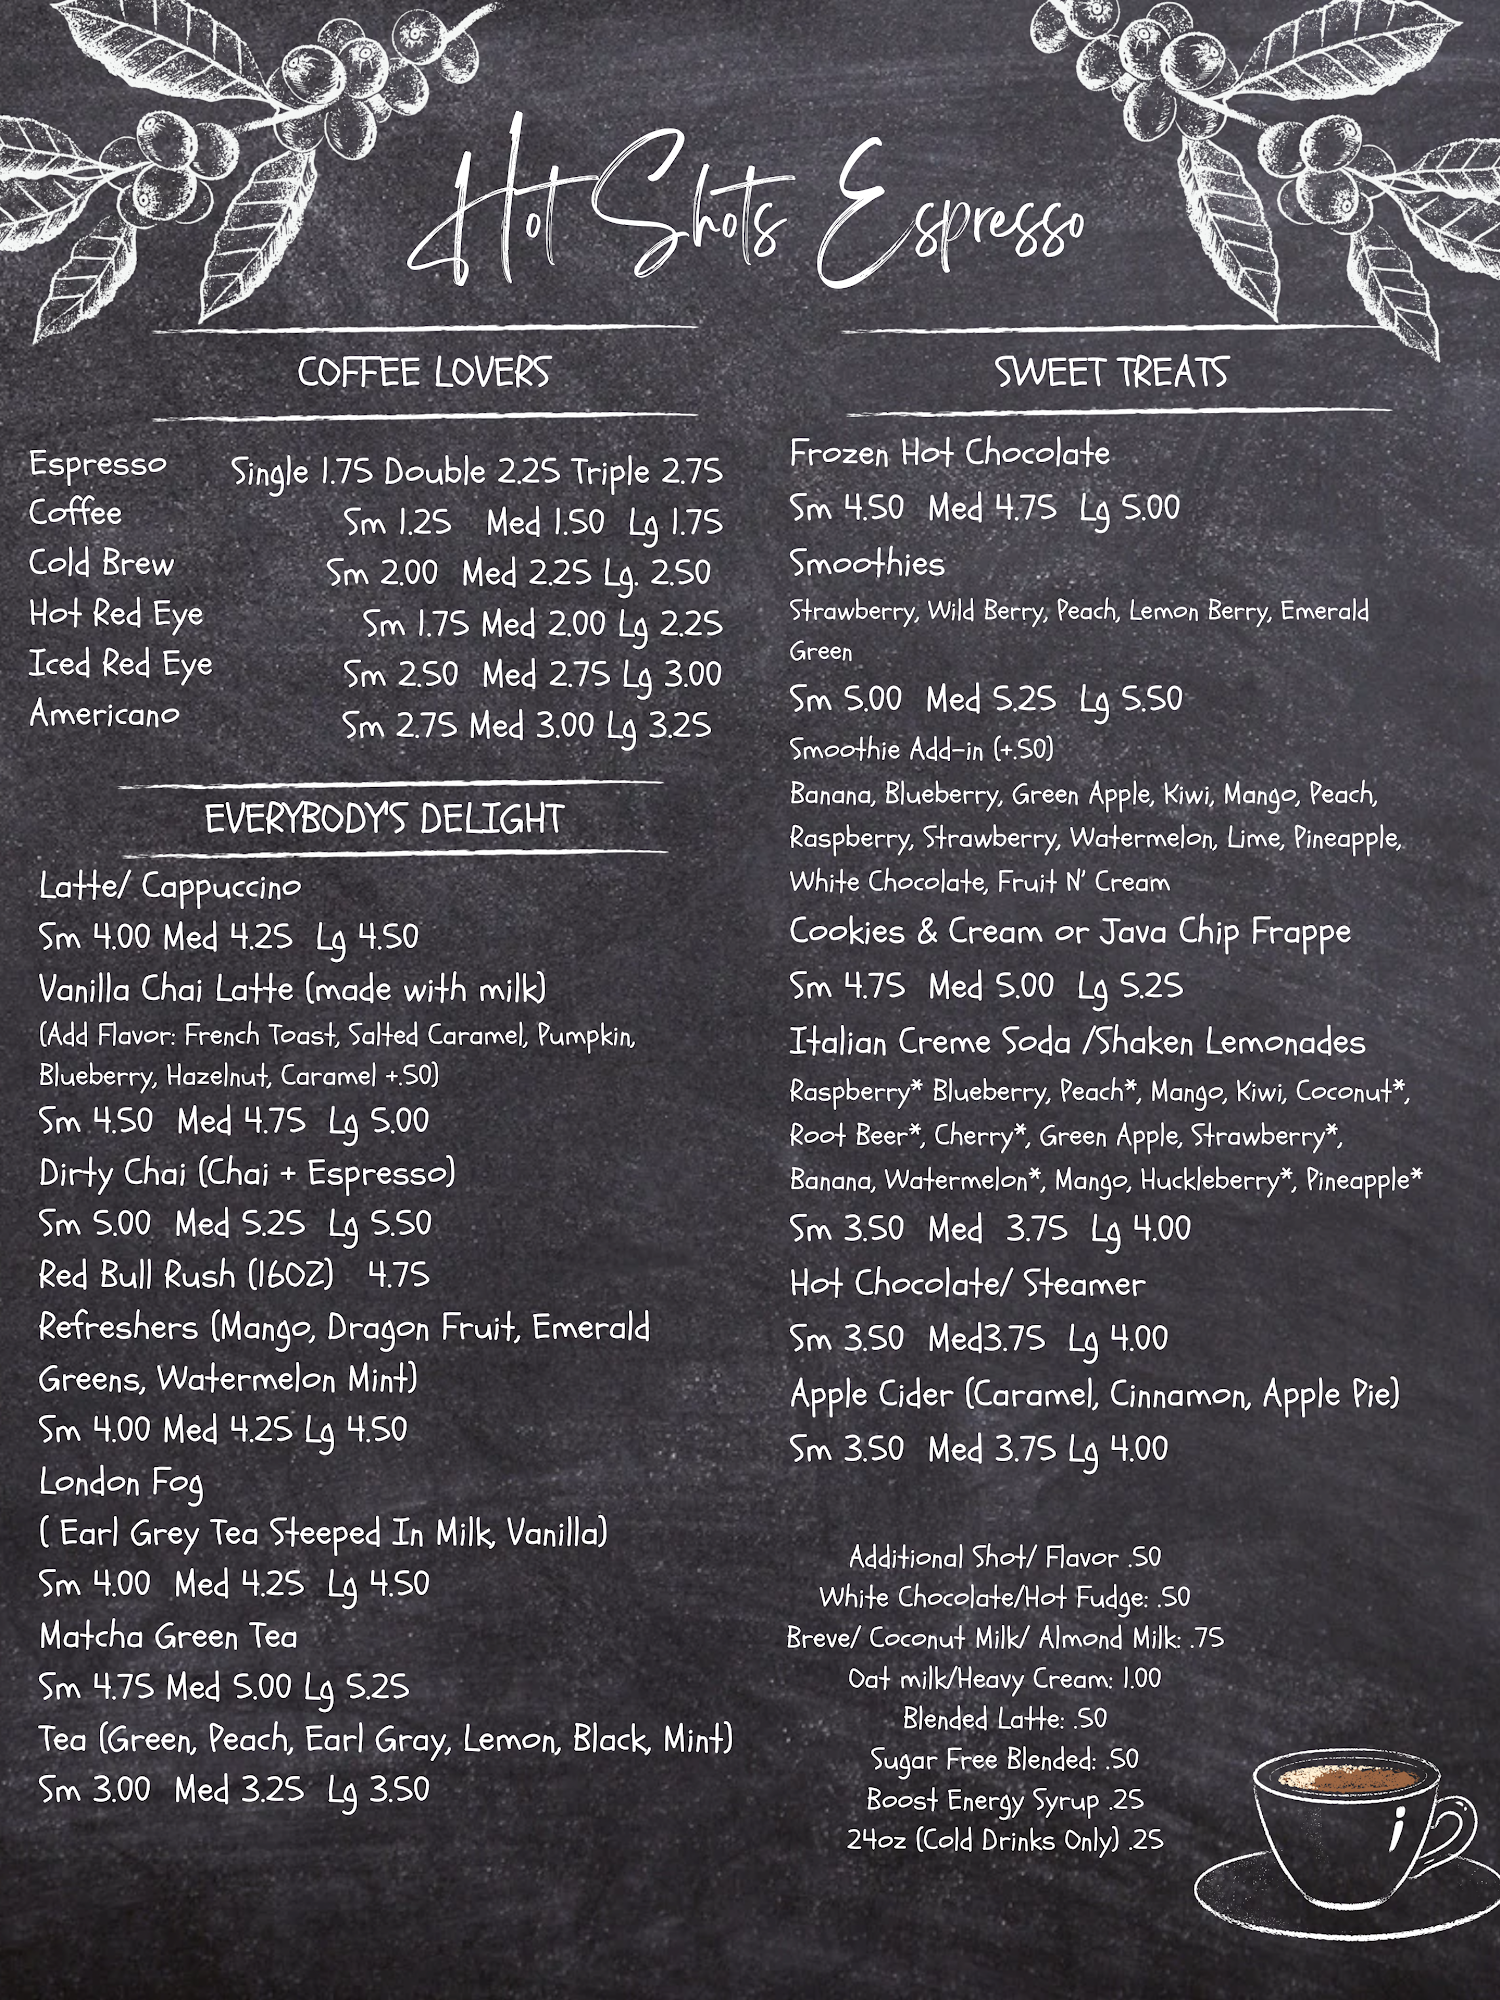 Hot Shots Espresso
COFFEE LOVERS
Espresso Single 1.75 Double 2.25 Triple 2.75
Coffee Sm 1.25 Med 1.50 Lg 1.75
Cold Brew Sm 2.00 Med 2.25 Lg. 2.50
Hot Red Eye Sm 1.75 Med 2.00 Lg 2.25
Iced Red Eye Sm 2.50 Med 2.75 Lg 3.00
Americano Sm 2.75 Med 3.00 Lg 3.25
EVERYBODY'S DELIGHT
Latte/ Cappuccino
Sm 4.00 Med 4.25 Lg 4.50
Vanilla Chai Latte (made with milk)
(Add Flavor: French Toast, Salted Caramel, Pumpkin,
Blueberry, Hazelnut, Caramel +.50)
Sm 4.50 Med 4.75 Lg 5.00
Dirty Chai (Chai + Espresso)
Sm 5.00 Med 5.25 Lg 5.50
Red Bull Rush (16OZ) 4.75
Refreshers (Mango, Dragon Fruit, Emerald
Greens, Watermelon Mint)
Sm 4.00 Med 4.25 Lg 4.50
London Fog
( Earl Grey Tea Steeped In Milk, Vanilla)
Sm 4.00 Med 4.25 Lg 4.50
Matcha Green Tea
Sm 4.75 Med 5.00 Lg 5.25
Tea (Green, Peach, Earl Gray, Lemon, Black, Mint)
Sm 3.00 Med 3.25 Lg 3.50
SWEET TREATS
Frozen Hot Chocolate
Sm 4.50 Med 4.75 Lg 5.00
Smoothies
Strawberry, Wild Berry, Peach, Lemon Berry, Emerald
Green
Sm 5.00 Med 5.25 Lg 5.50
Smoothie Add-in (+.50)
Banana, Blueberry, Green Apple, Kiwi, Mango, Peach,
Raspberry, Strawberry, Watermelon, Lime, Pineapple,
White Chocolate, Fruit N' Cream
Cookies & Cream or Java Chip Frappe
Sm 4.75 Med 5.00 Lg 5.25
Italian Creme Soda /Shaken Lemonades
Raspberry* Blueberry, Peach*, Mango, Kiwi, Coconut*,
Root Beer*, Cherry*, Green Apple, Strawberry*,
Banana, Watermelon*, Mango, Huckleberry*, Pineapple*
Sm 3.50 Med 3.75 Lg 4.00
Hot Chocolate/ Steamer
Sm 3.50 Med3.75 Lg 4.00
Apple Cider (Caramel, Cinnamon, Apple Pie)
Sm 3.50 Med 3.75 Lg 4.00
Additional Shot/ Flavor .50
White Chocolate/Hot Fudge: .50
Breve/ Coconut Milk/ Almond Milk: .75
Oat milk/Heavy Cream: 1.00
Blended Latte: .50
Sugar Free Blended: .50
Boost Energy Syrup .25
24oz (Cold Drinks Only) .25